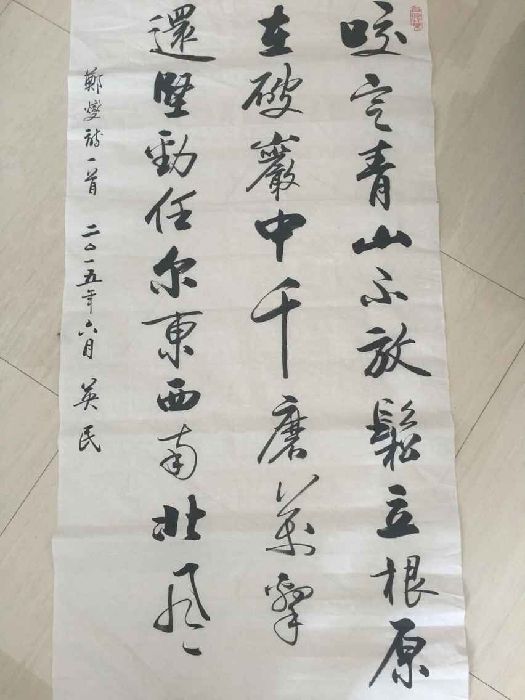 咬定青山不放鬆立根原
在破巖中千磨萬擊
還堅勁任尔東西南北风
鄭燮詩一首 二〇一五年六月 英民